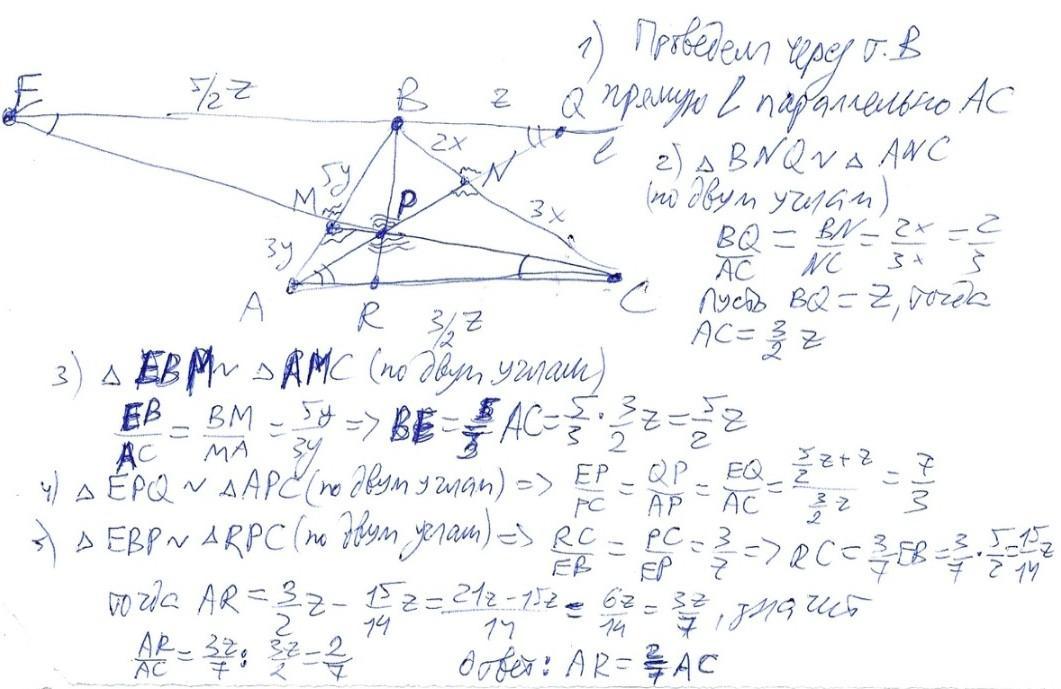 1) Проведем через т. B
прямую l параллельно AC
E 5/2 z B z Q l
2x N
5y M P
3y 3x
A R 3/2 z C
2) △ BNQ ~ △ ANC
(по двум углам)
BQ/AC = BN/NC = 2x/3x = 2/3
Пусть BQ = z, тогда
AC = 3/2 z
3) △ EBM ~ △ AMC (по двум углам)
EB/AC = BM/MA = 5y/3y => BE = 5/3 AC = 5/3 · 3/2 z = 5/2 z
4) △ EPQ ~ △ APC (по двум углам) => EP/PC = QP/AP = EQ/AC = (5/2 z + z)/(3/2 z) = 7/3
5) △ EBP ~ △ RPC (по двум углам) => RC/EB = PC/EP = 3/7 => RC = 3/7 EB = 3/7 · 5/2 = 15/14 z
тогда AR = 3/2 z - 15/14 z = (21z - 15z)/14 = 6z/14 = 3z/7, значит
AR/AC = 3z/7 : 3z/2 = 2/7 Ответ: AR = 2/7 AC